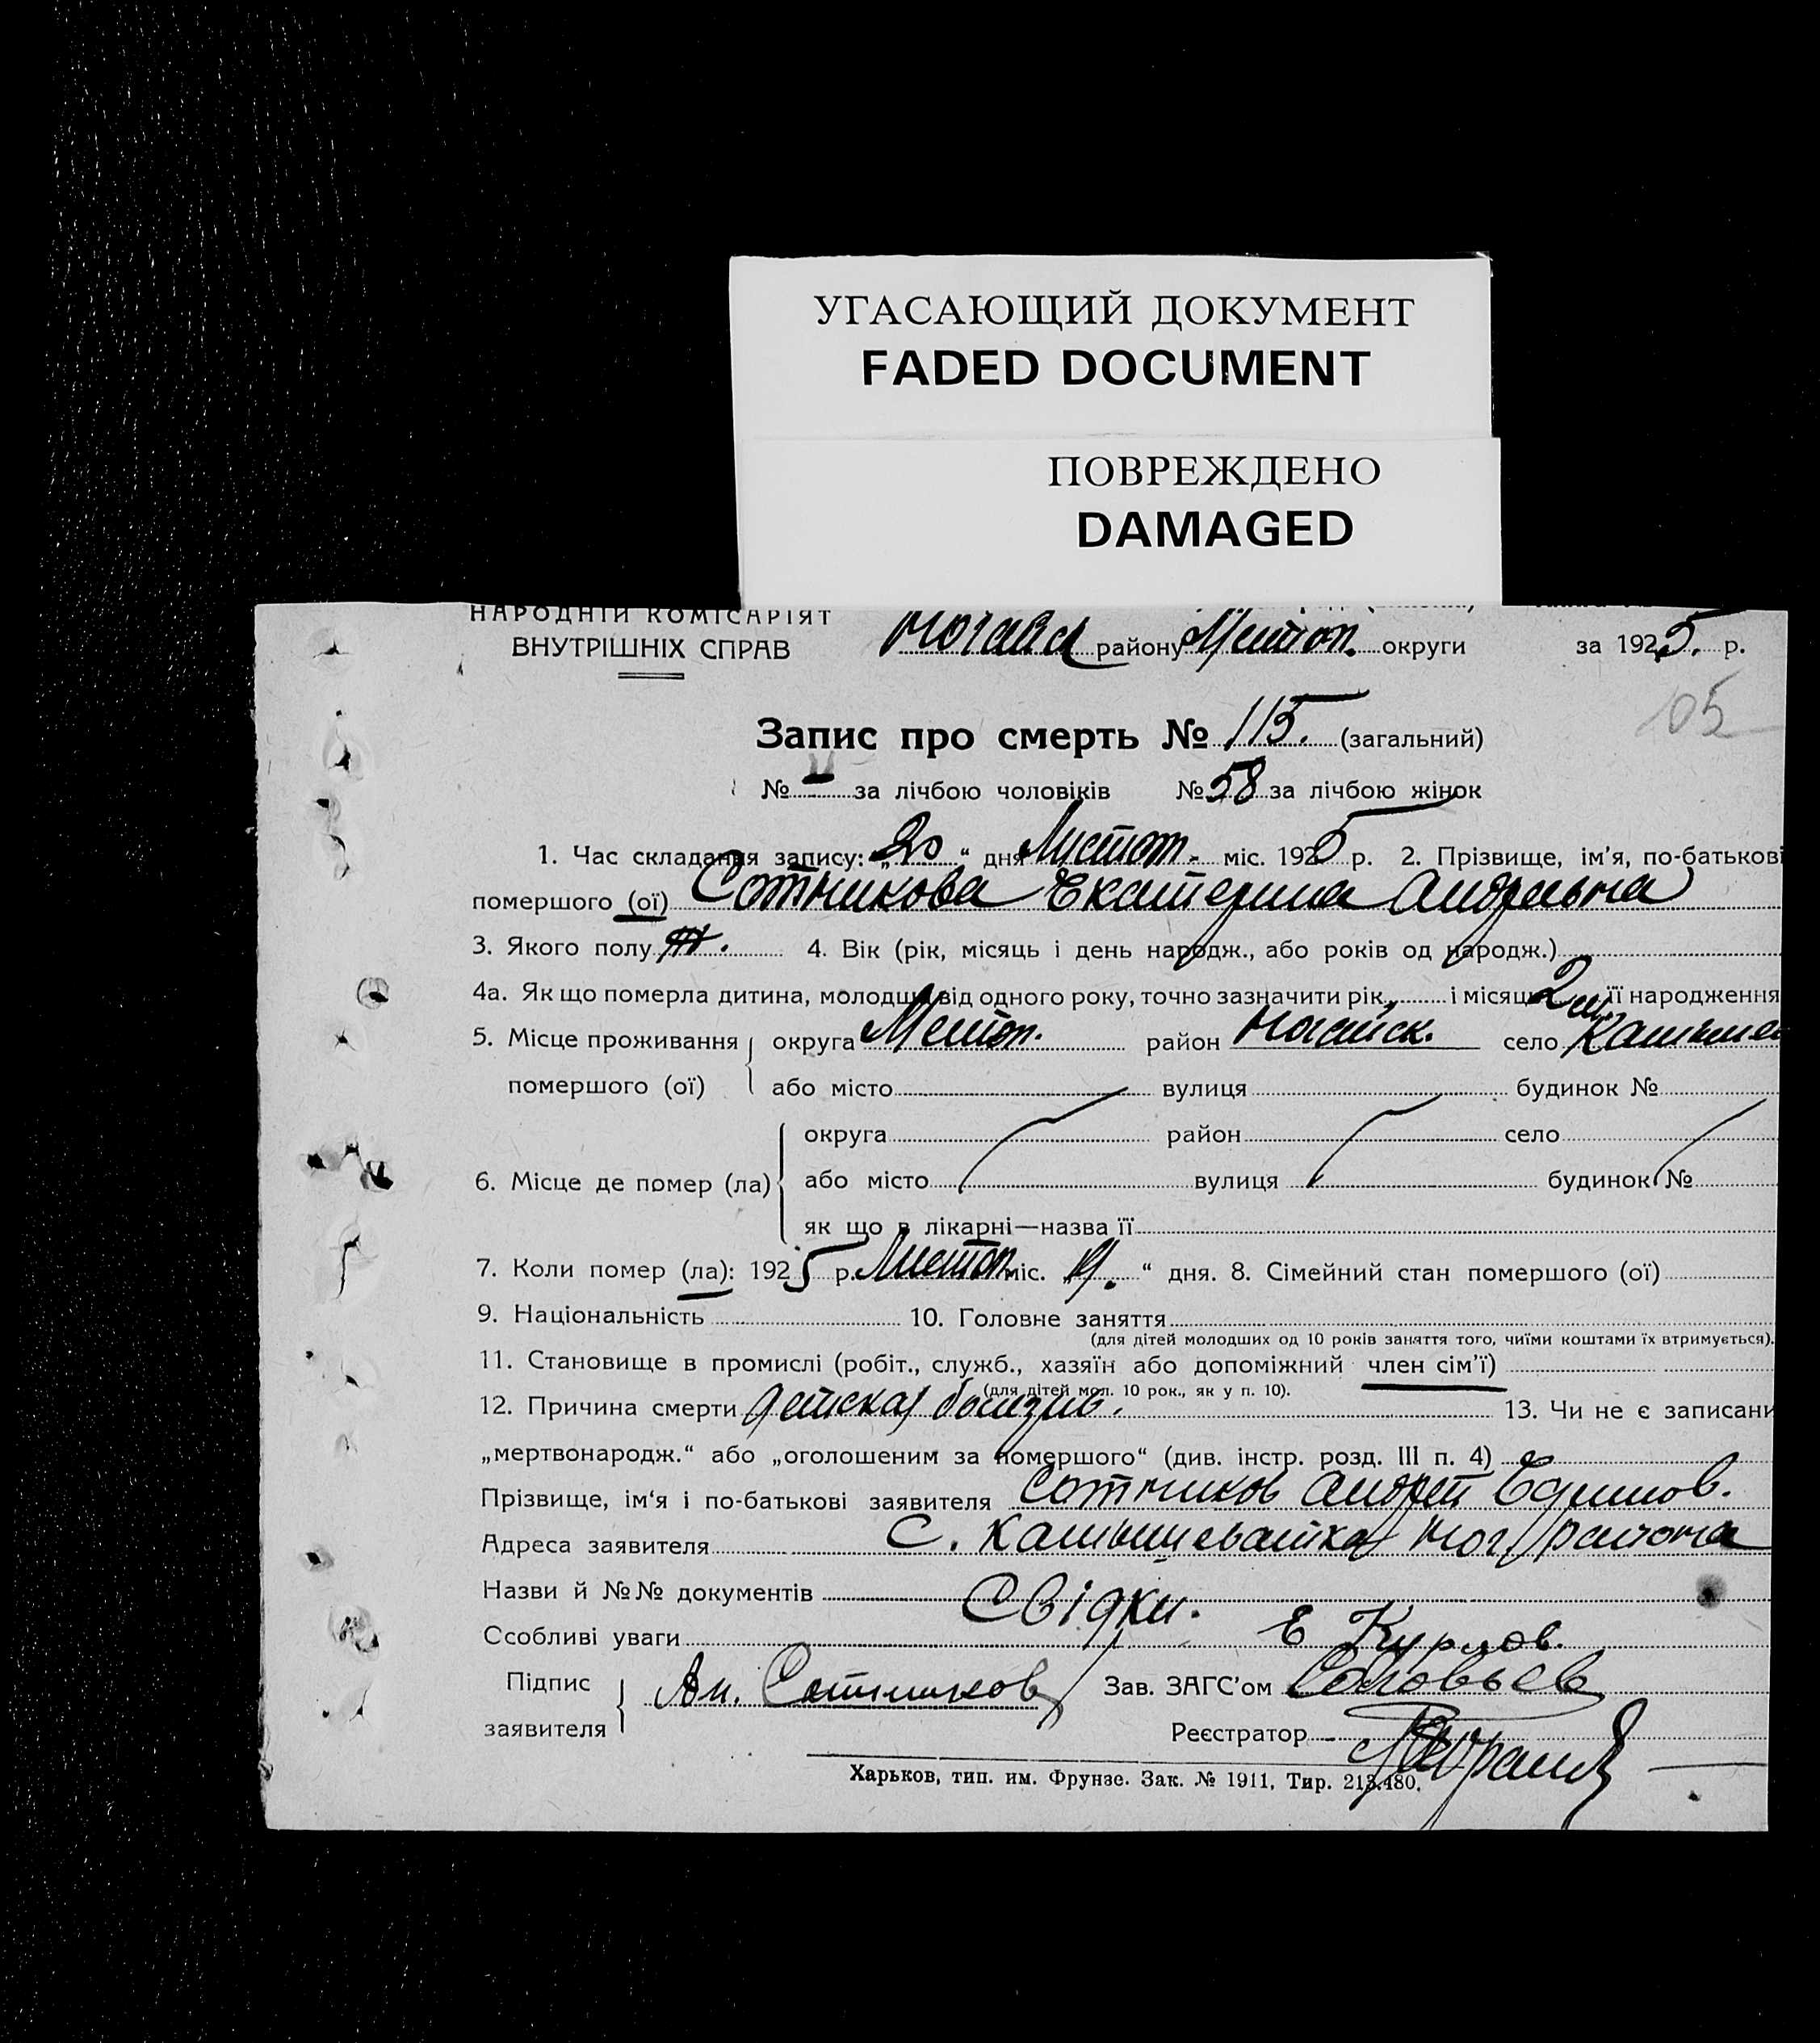 УГАСАЮЩИЙ ДОКУМЕНТ
FADED DOCUMENT
ПОВРЕЖДЕНО
DAMAGED
НАРОДНІЙ КОМІСАРІЯТ
ВНУТРІШНІХ СПРАВ району Метоп. округи за 1925. р.
105
Запис про смерть № 115. (загальний)
№ – за лічбою чоловіків № 58 за лічбою жінок
1. Час складання запису: „20“ дня Листоп. міс. 1925 р. 2. Прізвище, ім’я, по-батькові
помершого (ої) Сотникова Екатерина Андреевна
3. Якого полу ж. 4. Вік (рік, місяць і день народж., або років од народж.)
4а. Як що померла дитина, молодша від одного року, точно зазначити рік, і місяць 2 м. її народження
5. Місце проживання округа Метоп. район Ногайск. село Камыше
помершого (ої) або місто вулиця будинок №
округа район село
6. Місце де помер (ла) або місто вулиця будинок №
як що в лікарні—назва її
7. Коли помер (ла): 1925 р. Листоп. міс. 19. “ дня. 8. Сімейний стан помершого (ої)
9. Національність 10. Головне заняття
(для дітей молодших од 10 років заняття того, чиїми коштами їх втримується).
11. Становище в промислі (робіт., служб., хазяїн або допоміжний член сім’ї)
(для дітей мол. 10 рок., як у п. 10).
12. Причина смерти детская болезнь. 13. Чи не є записани
„мертвонародж.“ або „оголошеним за помершого“ (див. інстр. розд. III п. 4)
Прізвище, ім‘я і по-батькові заявителя Сотников Андрей Ефимов.
Адреса заявителя с. Камышеватка Ног. района
Назви й №№ документів Свідки.
Особливі уваги Е Курлов.
Підпис заявителя Ан. Сотников Зав. ЗАГС’ом Соловьев
Реєстратор
Харьков, тип. им. Фрунзе. Зак. № 1911, Тир. 213.480.